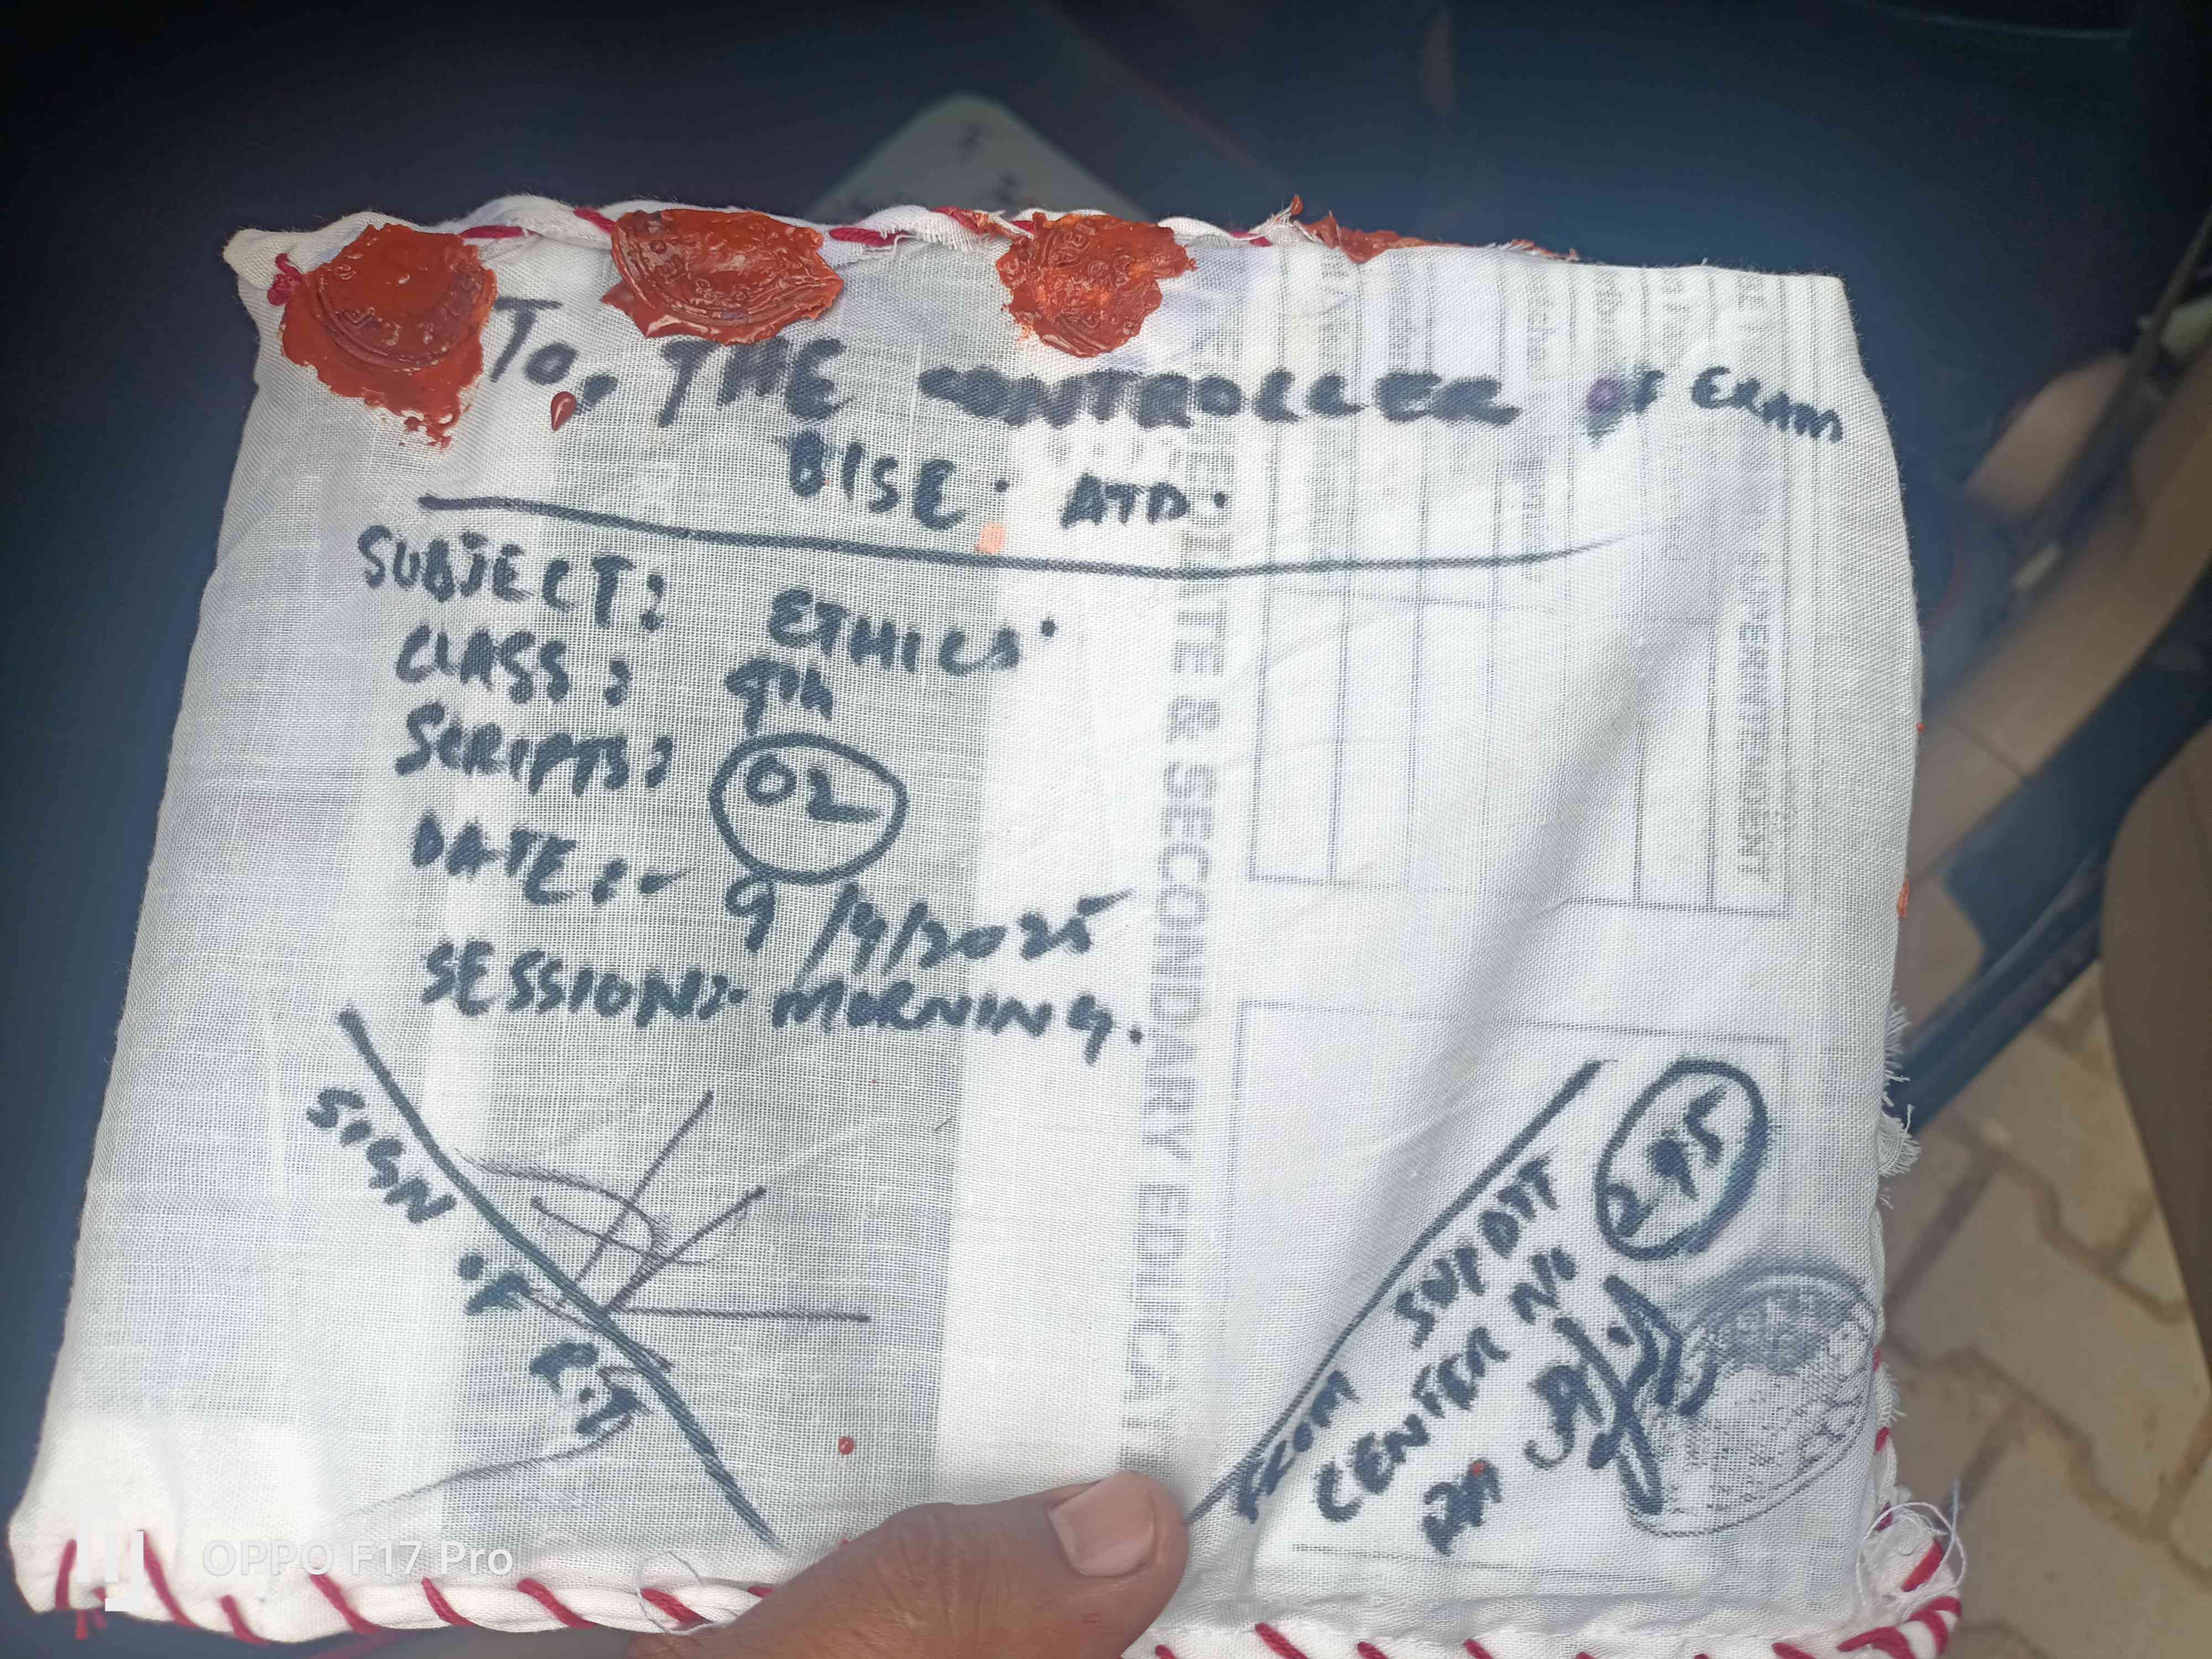 To, THE CONTROLLER OF EXAM
BISE. ATD.
SUBJECT: ETHICS.
CLASS: 9th
SCRIPTS: 02
DATE:- 9/4/2025
SESSION:- MORNING.
SIGN OF R.I
FROM SUPDTT
CENTER No 295
ITE & SECONDARY EDUCA
SUPERINTENDENT
OPPO F17 Pro